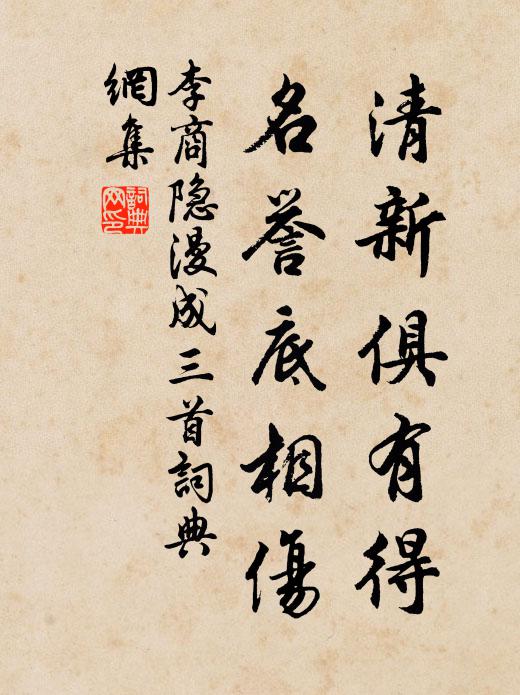 清新俱有得
名誉底相傷
李商隐漫成三首詞典
網集
詞典网印